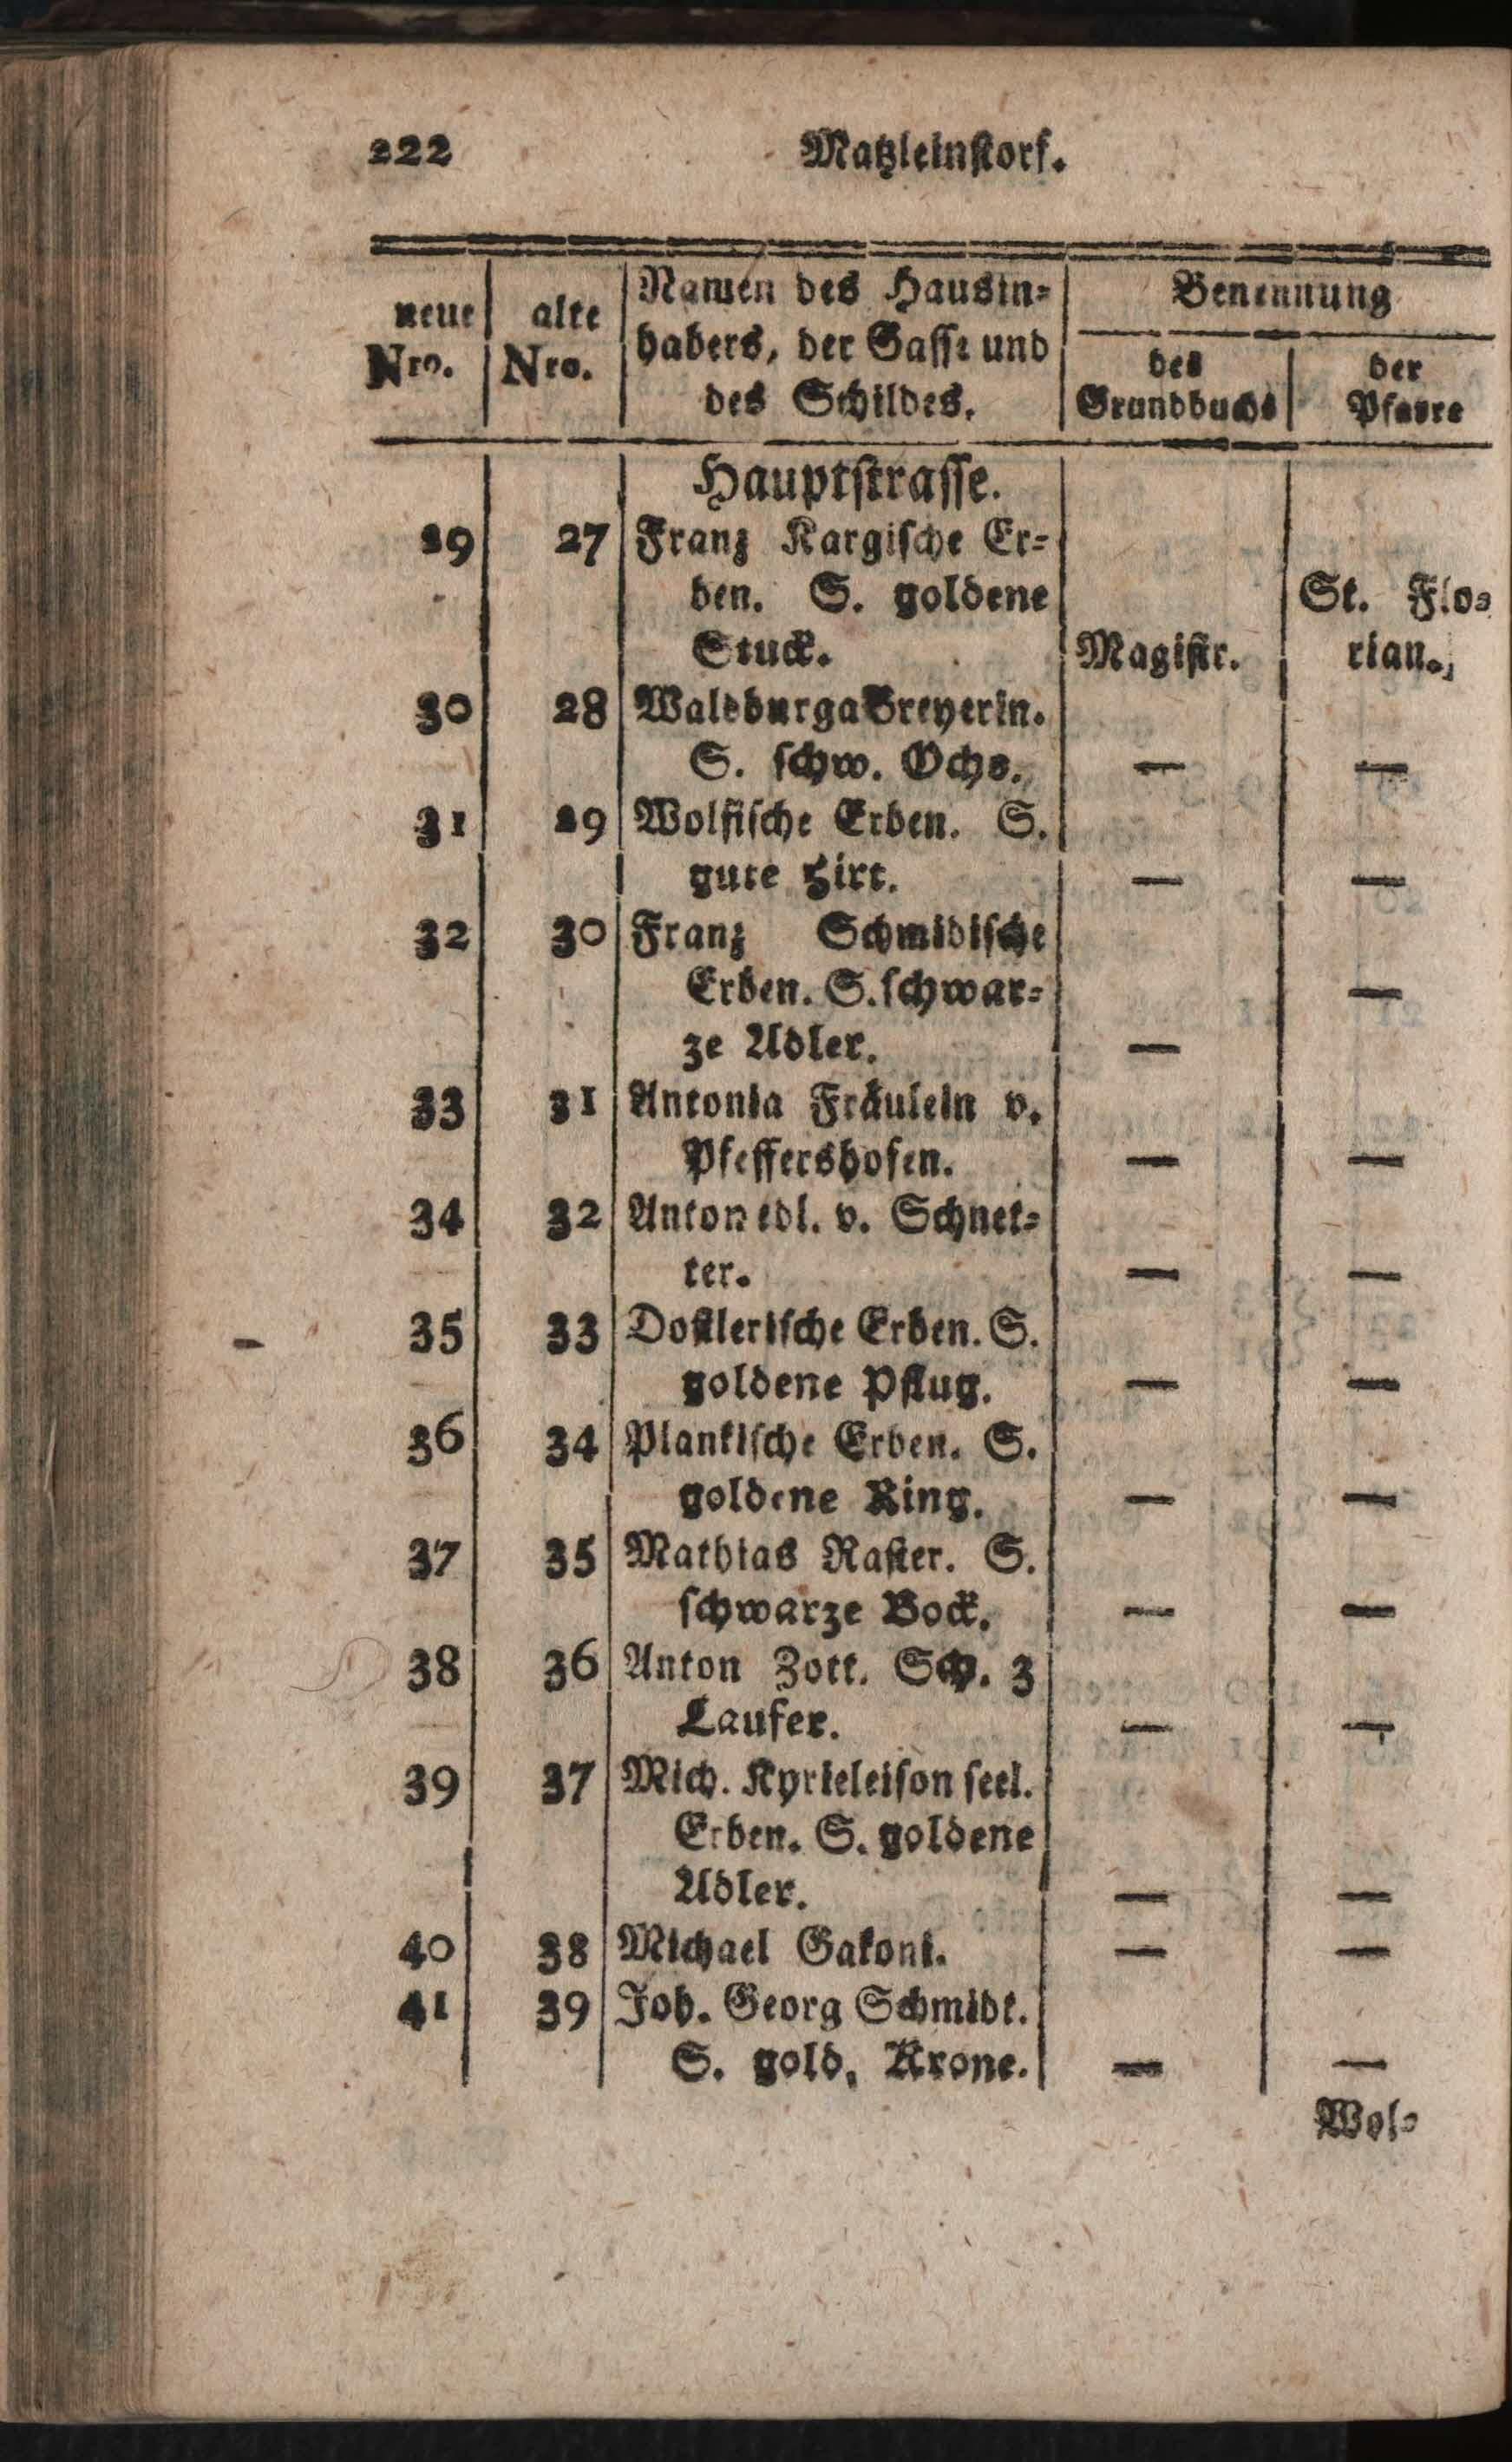 222 Matzleinstorf.
neue Nro. | alte Nro. | Namen des Hausin= | Benennung
habers, der Gasse und | des | der
des Schildes. | Grundbuchs | Pfarre
Hauptstrasse.
29 27 Franz Kargische Er=
ben. S. goldene St. Flo=
Stuck. Magistr. rian.
30 28 Waldburga Breyerin.
S. schw. Ochs. — —
31 29 Wolfische Erben. S.
gute Hirt. — —
32 30 Franz Schmidische
Erben. S. schwar= —
ze Adler. —
33 31 Antonia Fräulein v.
Pfeffershofen. — —
34 32 Anton edl. v. Schnet=
ter. — —
35 33 Dostlerische Erben. S.
goldene Pflug. — —
36 34 Plankische Erben. S.
goldene Ring. — —
37 35 Mathias Raster. S.
schwarze Bock. — —
38 36 Anton Zott. Sch. 3
Laufer. — —
39 37 Mich. Kyrieleison seel.
Erben. S. goldene
Adler. — —
40 38 Michael Gakoni. — —
41 39 Joh. Georg Schmidt.
S. gold. Krone. — —
Wol=